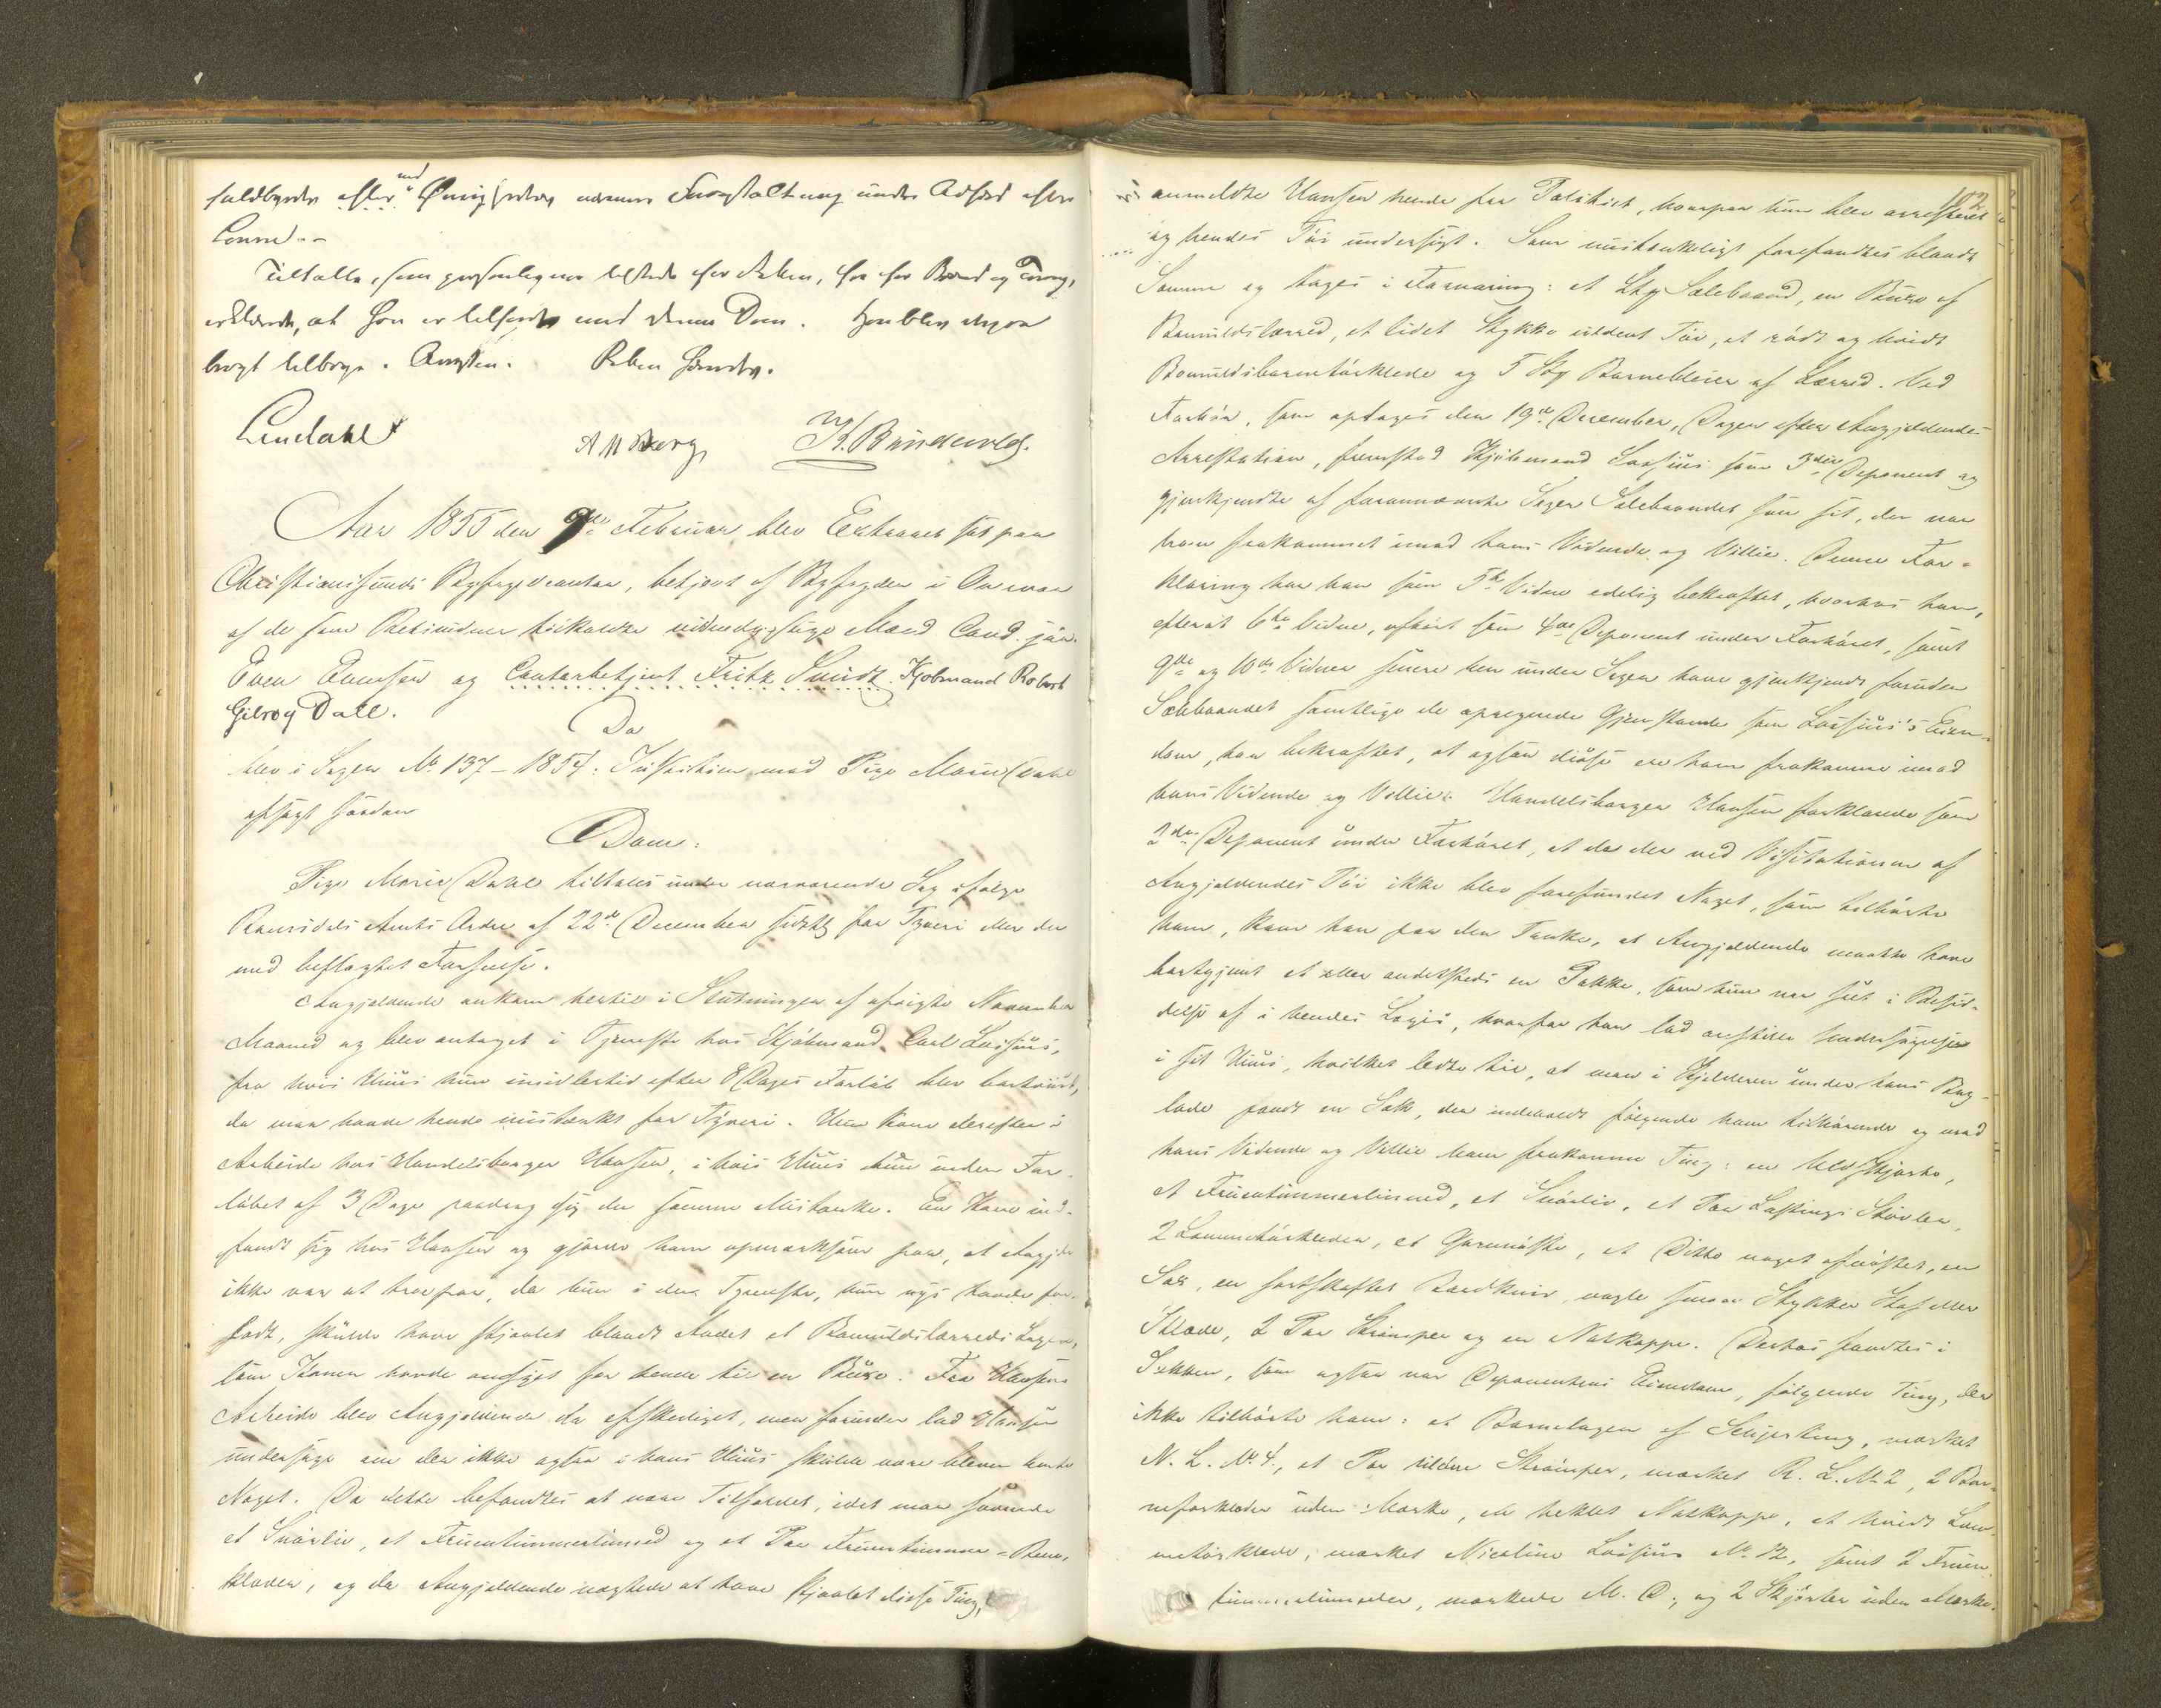 fuldbyrdes efter ved Øvrighedens nærmere Foranstaltning under Adfærd efter
Loven.
Tiltalte, som personligen tilstede for Retten, fri for Baand og Tvang,
erklærede, at hun er tilfreds med denne Dom. Hun blev derpaa
bragt tilbage. Retten hævet.
Lindahl
A M Berg
Aar 1855 den 9de Februar blev Extraret sat paa
Christianssunds Byfogedcontor, betjent af Byfogden i Overvær
af de som Retsvidner tilkaldte Mænd Cand. jur.
Even Evensen og Contorbetjent Fritz Smidt. Kjøbmand Robert
Gilroy Dall.
Da
blev i Sagen No 137 – 1854: Justitien mod Pige Marie Dahl
afsagt saadan
Dom:
Pige Marie Dahl tiltales under nærværende Sag ifølge
Romsdals Amts Ordre af 22de December sidstl. for Tyveri eller der-
med beslægtet Forseelse.
Angjældende ankom hertil i Slutningen af afvigte November
Maaned og blev antaget i Tjeneste hos Kjøbmand Carl Lossius,
fra hvis Huus hun imidlertid efter 8 Dages Forløb blev bortviist,
da man havde hende mistænkt for Tyveri. Hun kom derefter i
Arbeide hos Handelsborger Hansen, i hvis Huus hun inden For-
løbet af 3 Dage paadrog sig den samme Mistanke. En Kone ind-
fandt sig hos Hansen og gjorde ham opmærksom paa, at Angjld.
ikke var at troe paa, da hun i den Tjeneste, hun nys havde for-
ladt, skulde have stjaalet blandt Andet et Bomuldslærreds Lagen,
som Konen havde omsyet for hende til en Buxe. Fra Hansens
Arbeide blev Angjældende da afskediget, men forinden lod Hansen
undersøge om der ikke ogsaa i hans Huus skulde være bleven borte
Noget. Da dette befandtes at være Tilfældet, idet man savnede
et Snørliv, et Fruentimmerlinned og et Par Fruentimmer-Been-
klæder, og da Angjældende nægtede at have stjaalet disse Ting,
102
anmeldte Hansen hende for Politiet, hvorpaa hun blev arresteret
og hendes Tøi undersøgt. Som mistænkeligt forefandtes blandt
Samme og toges i Forvaring: et Stk. Salebaand, en Buxe af
Bomuldslærred, et lidet Stykke uldent Tøi, et rødt og hvidt
Bomuldsbarnetørklæde og 5 Stk Barnebleier af Lærred. Ved
Forhør, som optoges den 19de December, Dagen efter Angjældendes
Arrestation, fremstod Kjøbmand Lossius som 3die Deponent og
gjenkjendte af forannævnte Sager Salebaandet som sit, der var
ham frakommet imod hans Vidende og Villie. Denne For-
klaring har han som 5te Vidne edelig bekræftet, hvorhos han,
efterat 6te Vidne, afhørt som 4de Deponent under Forhøret, samt
9de og 10de Vidner senere hen under Sagen have gjenkjendt foruden
Salebaandet samtlige de opregnede Gjenstande som Lossius's Eien-
dom, har bekræftet, at ogsaa disse ere ham frakomne imod
hans Vidende og Villie. Handelsborger Hansen forklarede som
2den Deponent under Forhøret, at da der ved Visitationen af
Angjældendes Tøi ikke blev forefundet Noget, som tilhørte
ham, kom han paa den Tanke, at Angjældende maatte have
bortgjemt et eller andetsteds en Pakke, som hun var seet i Besid-
delse af i hendes Logis, hvorfor han lod anstille Undersøgelse
i sit Huus, hvilket ledte til, at man i Kjelderen under hans Bag-
lade fandt en Sæk, der indeholdt følgende ham tilhørende og mod
hans Vidende og Villie ham frakomne Ting: en Uldskjorte,
et Fruentimmerlinned, et Snørliv, et Par Lastings Støvler,
2 Lommetørklæder, et Garnnøste, et Ditto noget afnøstet, en
Sax, en sortskaftet Bordkniv, nogle smaa Stykker Stof eller
Klæde, 2 Par Strømper og en Natkappe. Derhos fandtes i
Sækken, som ogsaa var Deponentens Eiendom, følgende Ting, der
ikke tilhørte ham: et Barnelagen af Schjerting, mærket
N. L. No 4., et Par uldne Strømper, mærket R. L. No 2, 2 Bar-
neforklæder uden Mærke, en heklet Natkappe, et hvidt Lom-
metørklæde, mærket Nicoline Lossius No 12, samt 2 Fruen-
timmerlinneder, mærkede M. D., og 2 Skjorter uden Mærke.